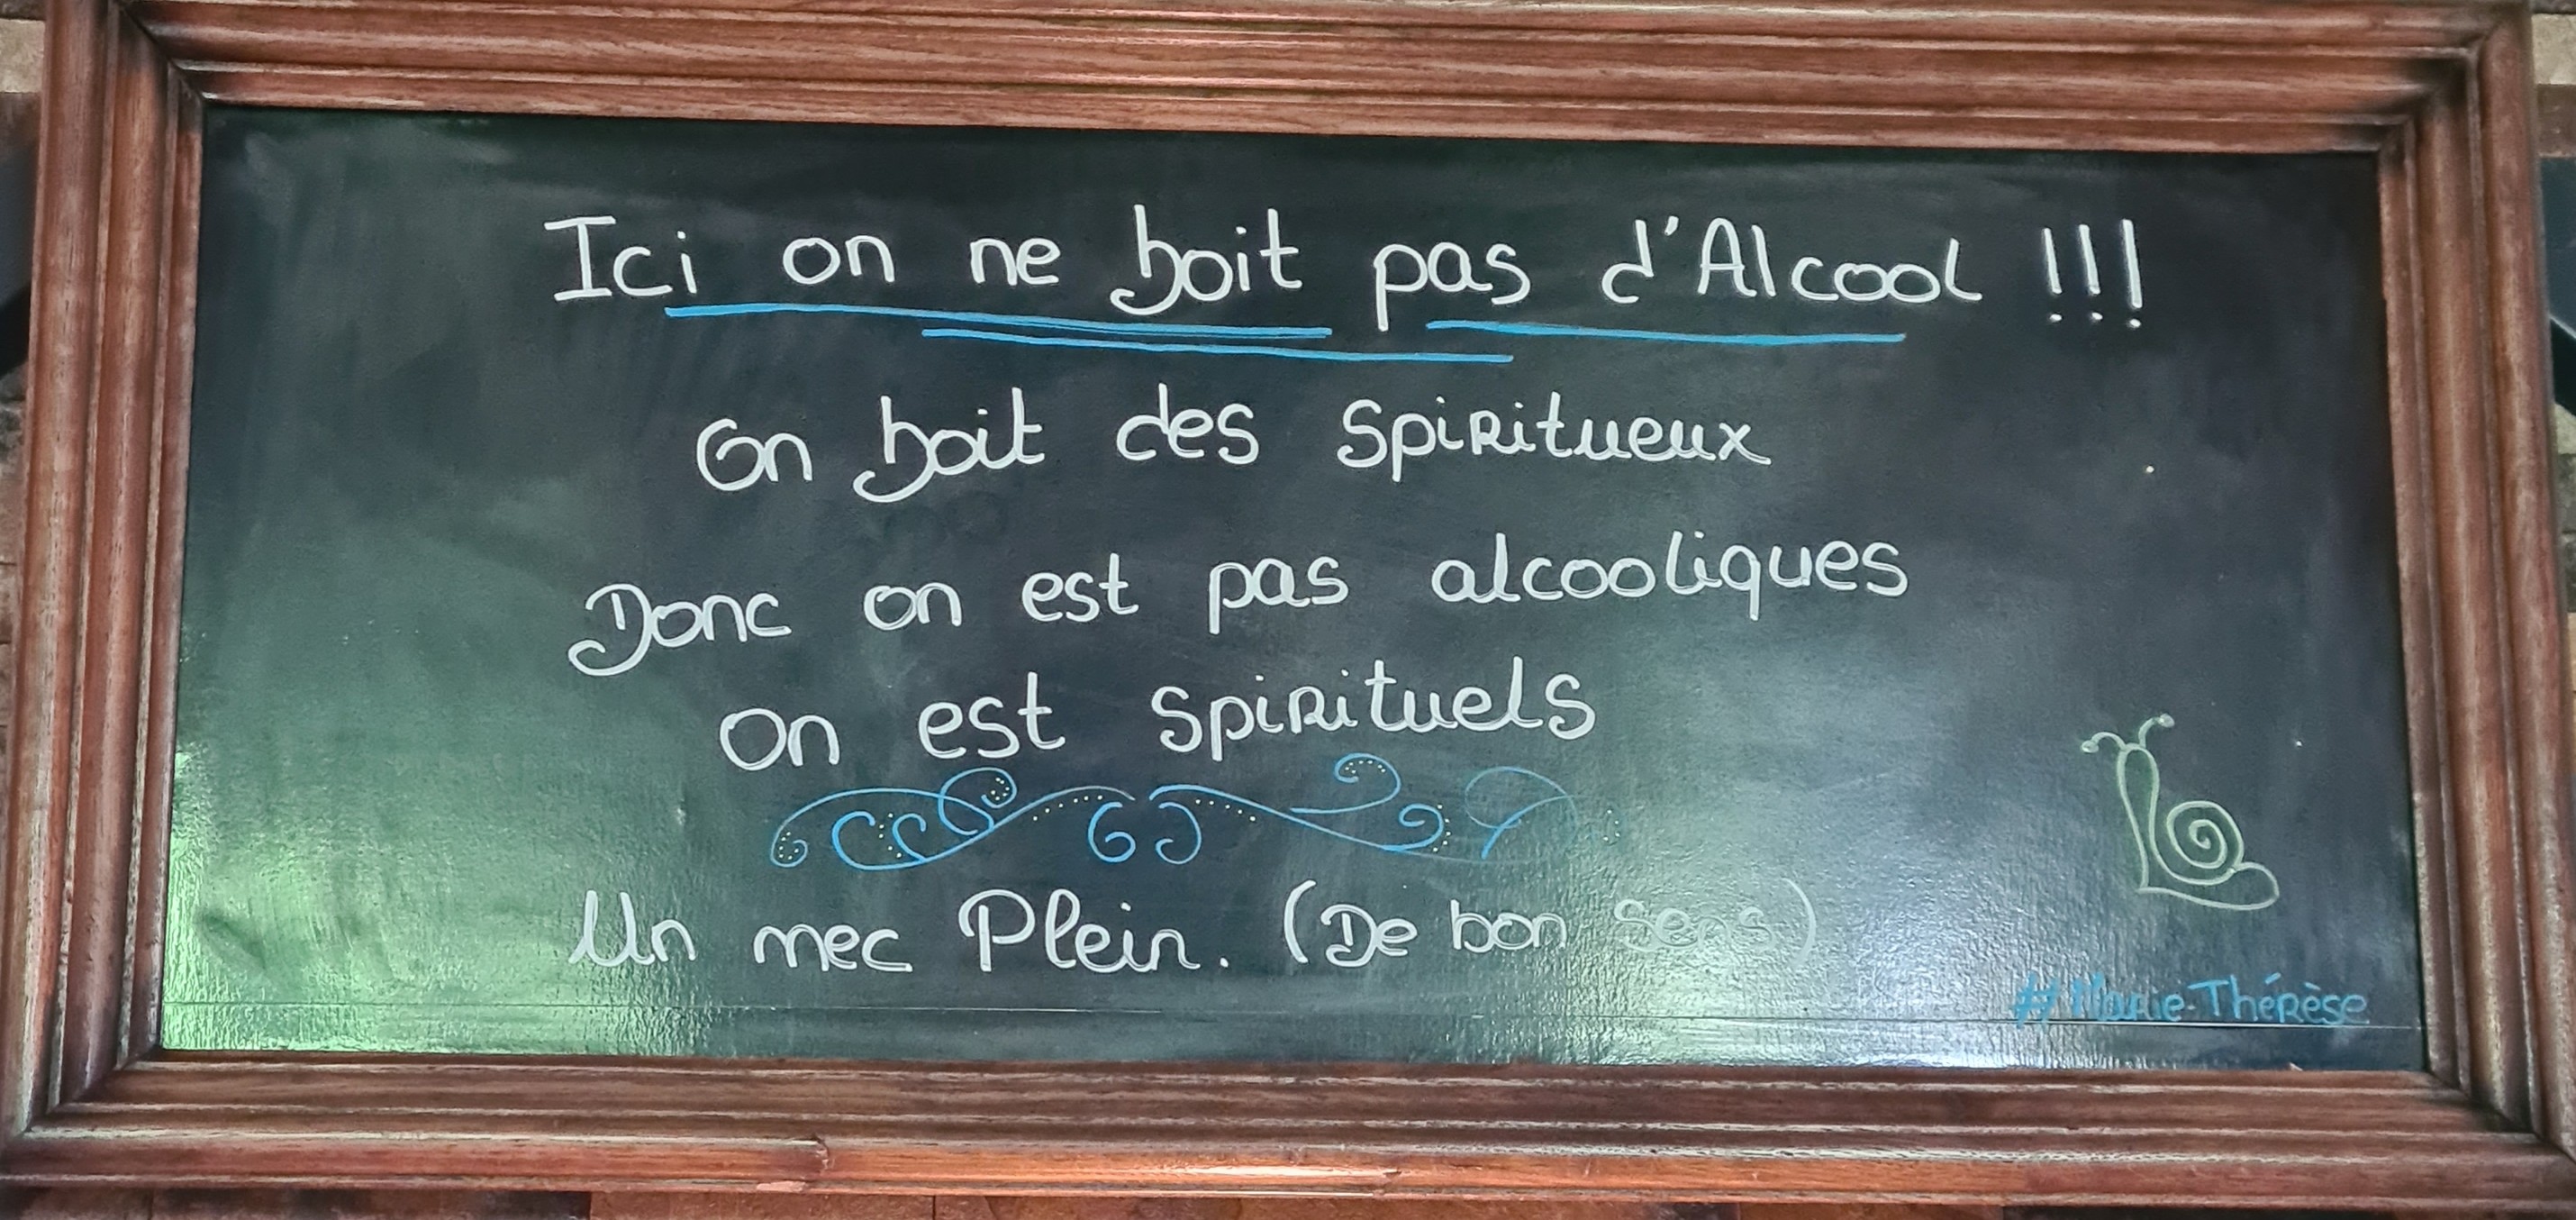 Ici on ne boit pas d'Alcool !!!
On boit des spiritueux
Donc on est pas alcooliques
On est spirituels
Un mec Plein. (De bon sens)
# Marie-Thérèse